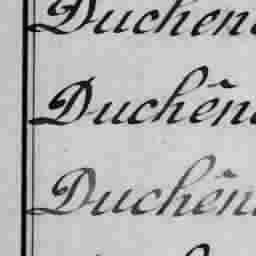 Duchên
Duchên
Duchên